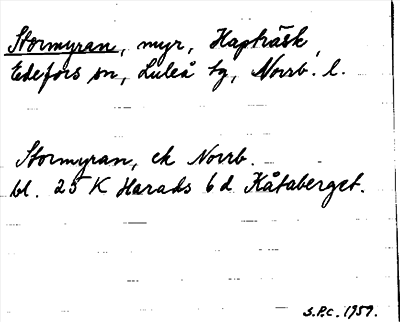 Stormyran, myr, Hapträsk,
Edefors sn, Luleå tg, Norrb. l.
Stormyran, ek Norrb.
bl. 25 K Harads 6 d Kåtaberget.
S.P.C. 1959.